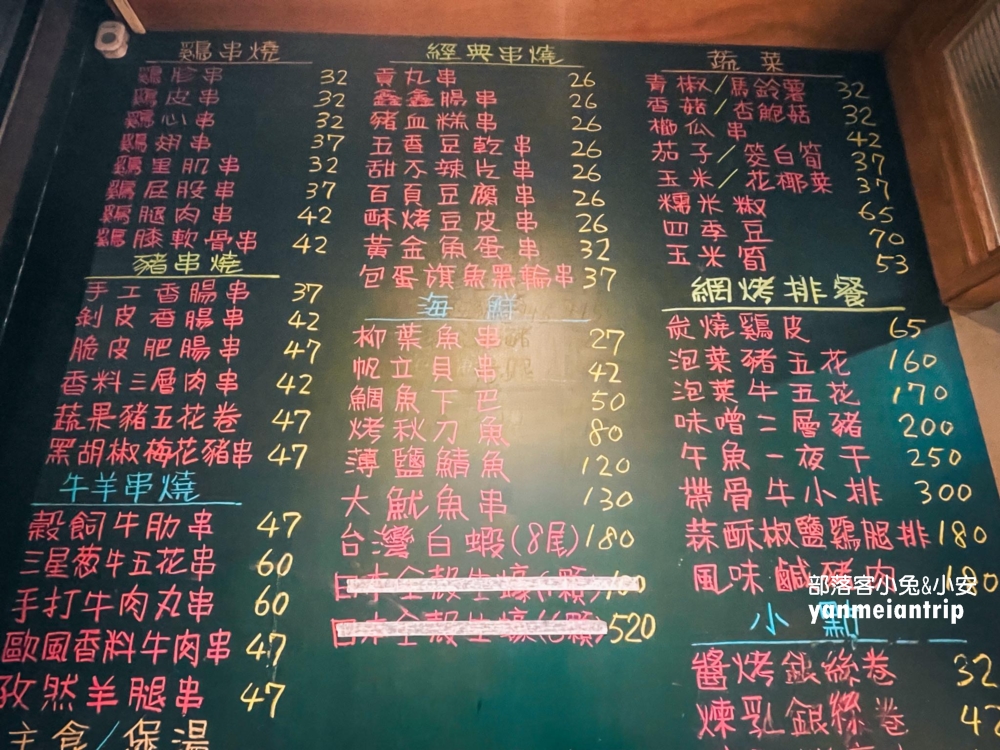 鷄串燒
鷄胗串 32
鷄皮串 32
鷄心串 32
鷄翅串 37
鷄里肌串 32
鷄屁股串 37
鷄腿肉串 42
鷄膝軟骨串 42
豬串燒
手工香腸串 37
剝皮香腸串 42
脆皮肥腸串 47
香料三層肉串 42
蔬果豬五花卷 47
黑胡椒梅花豬串 47
牛羊串燒
穀飼牛肋串 47
三星葱牛五花串 60
手打牛肉丸串 60
歐風香料牛肉串 47
孜然羊腿串 47
主食/煲湯
經典串燒
貢丸串 26
鑫鑫腸串 26
豬血糕串 26
五香豆乾串 26
甜不辣片串 26
百頁豆腐串 26
酥烤豆皮串 26
黃金魚蛋串 32
包蛋旗魚黑輪串 37
海鮮
柳葉魚串 27
帆立貝串 42
鯛魚下巴 50
烤秋刀魚 80
薄鹽鯖魚 120
大魷魚串 130
台灣白蝦(8尾) 180
日本全殼生蠔(1顆)
日本全殼生蠔(6顆) 520
蔬菜
青椒/馬鈴薯 32
香菇/杏鮑菇 32
櫛瓜串 42
茄子/筊白筍 37
玉米/花椰菜 37
糯米椒 65
四季豆 70
玉米筍 53
網烤排餐
炭燒鷄皮 65
泡菜豬五花 160
泡菜牛五花 170
味噌二層豬 200
午魚一夜干 250
帶骨牛小排 300
蒜酥椒鹽鷄腿排 180
風味鹹豬肉 180
部落客小兔&小安
yanmeiantrip
小點
醬烤銀絲卷 32
煉乳銀絲卷